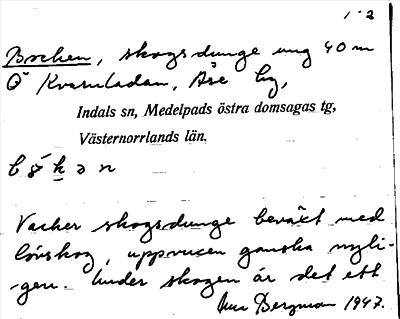 1-2
Bochen, skogsdunge ung 40 m
Ö Kvarnladan, Åse by,
Indals sn, Medelpads östra domsagas tg,
Västernorrlands län.
Vacker skogsdunge beväxt med
lövskog, uppvuxen ganska nyli-
-gen. Under skogen är det ett
Bergman 1947.